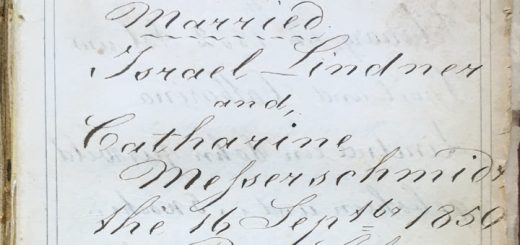 Married.
Israel Lindner
and,
Catharine
Messerschmidt
the 16 Septbr 1850